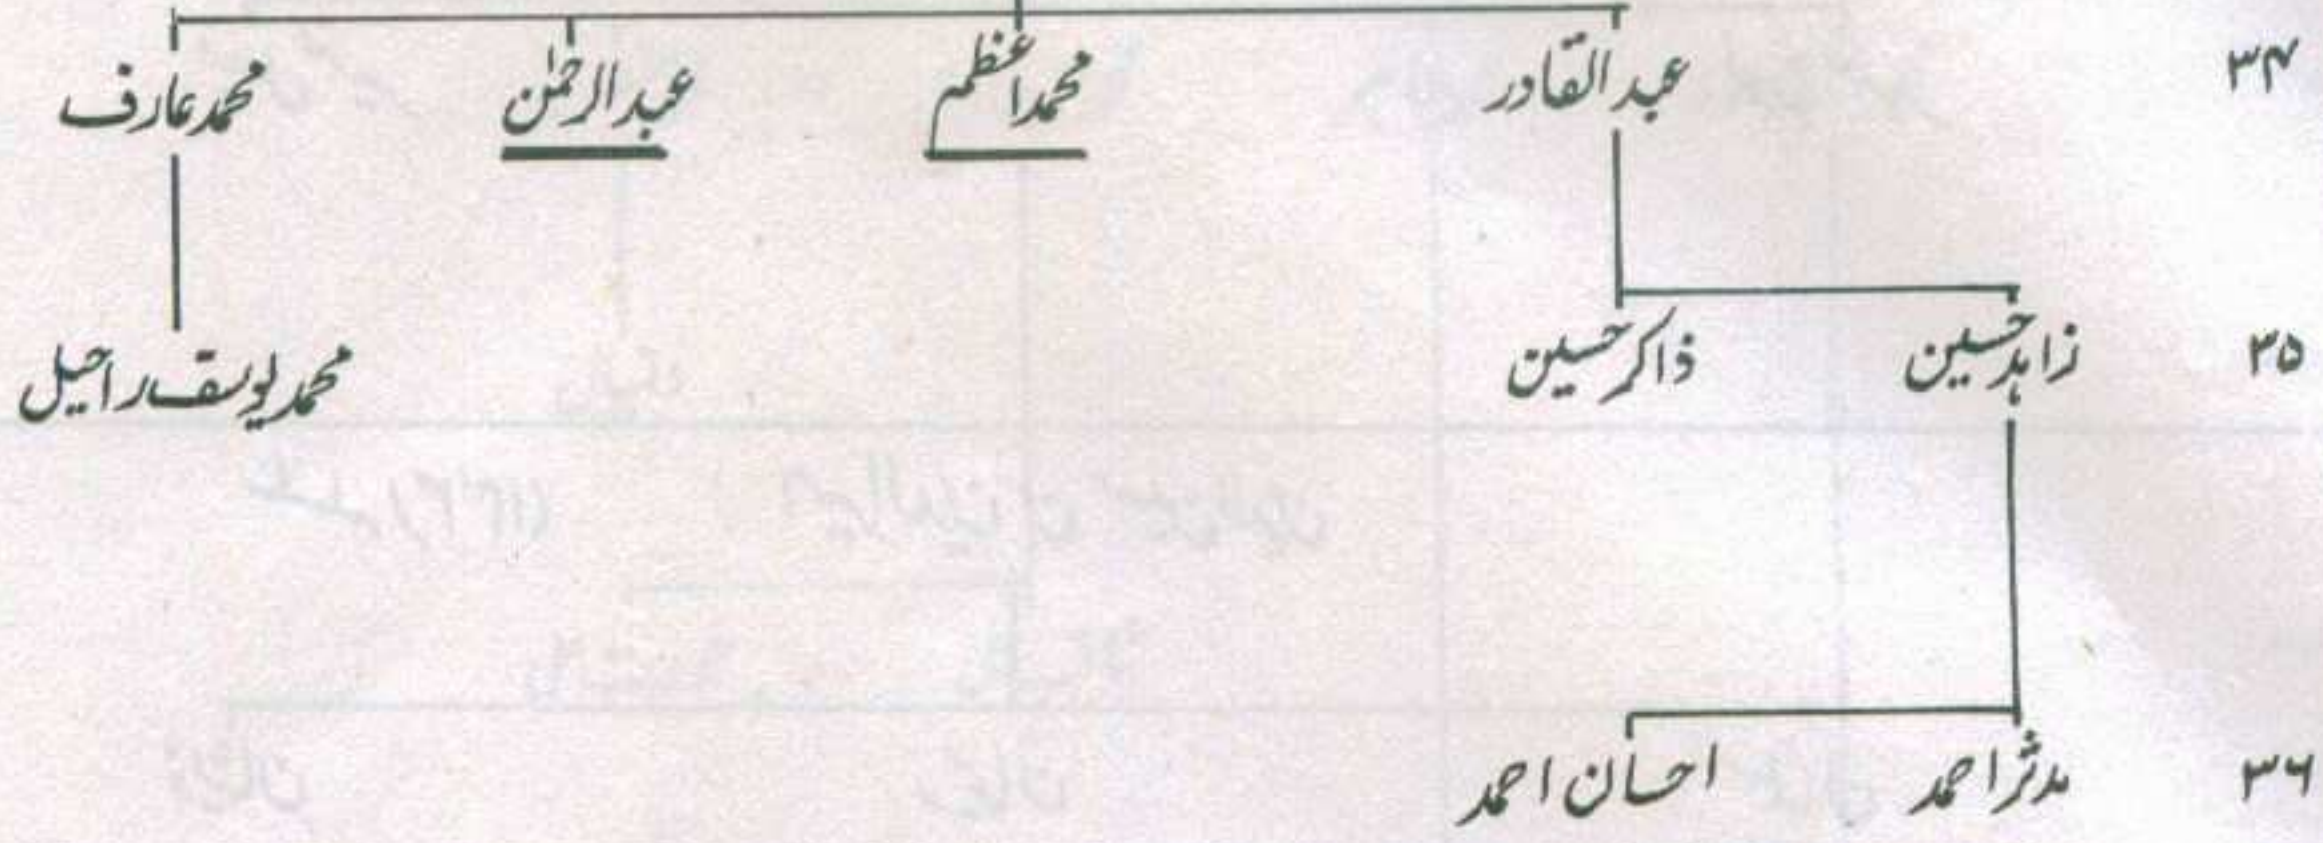 ۳۴ عبدالقادر محمد اعظم عبدالرحمٰن محمد عارف
۳۵ زاہد حسین ذاکر حسین محمد یوسف راحیل
۳۶ مدثر احمد احسان احمد